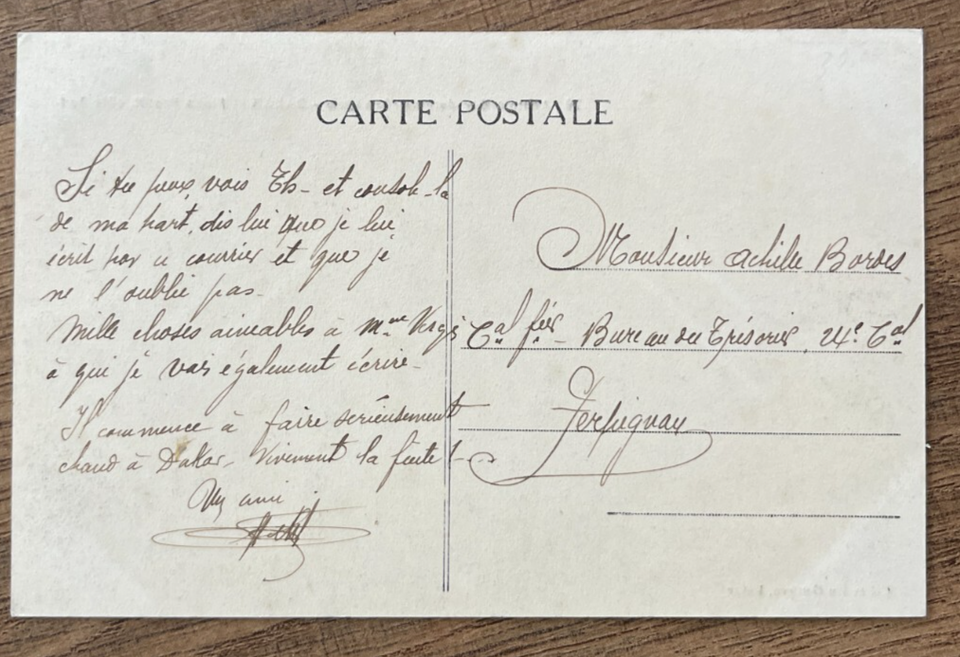 CARTE POSTALE
Si tu peux, vois Th- et console-la
de ma part, dis lui que je lui
écris par ce courrier et que je
ne l'oublie pas.
Mille choses aimables à Mme
à qui je vais également écrire.
Il commence à faire sérieusement
chaud à Dakar. Vivement la fuite!
Un ami
Monsieur Achille Bordes
Cal fer - Bureau du Trésorier, 24e Cal
Perpignan